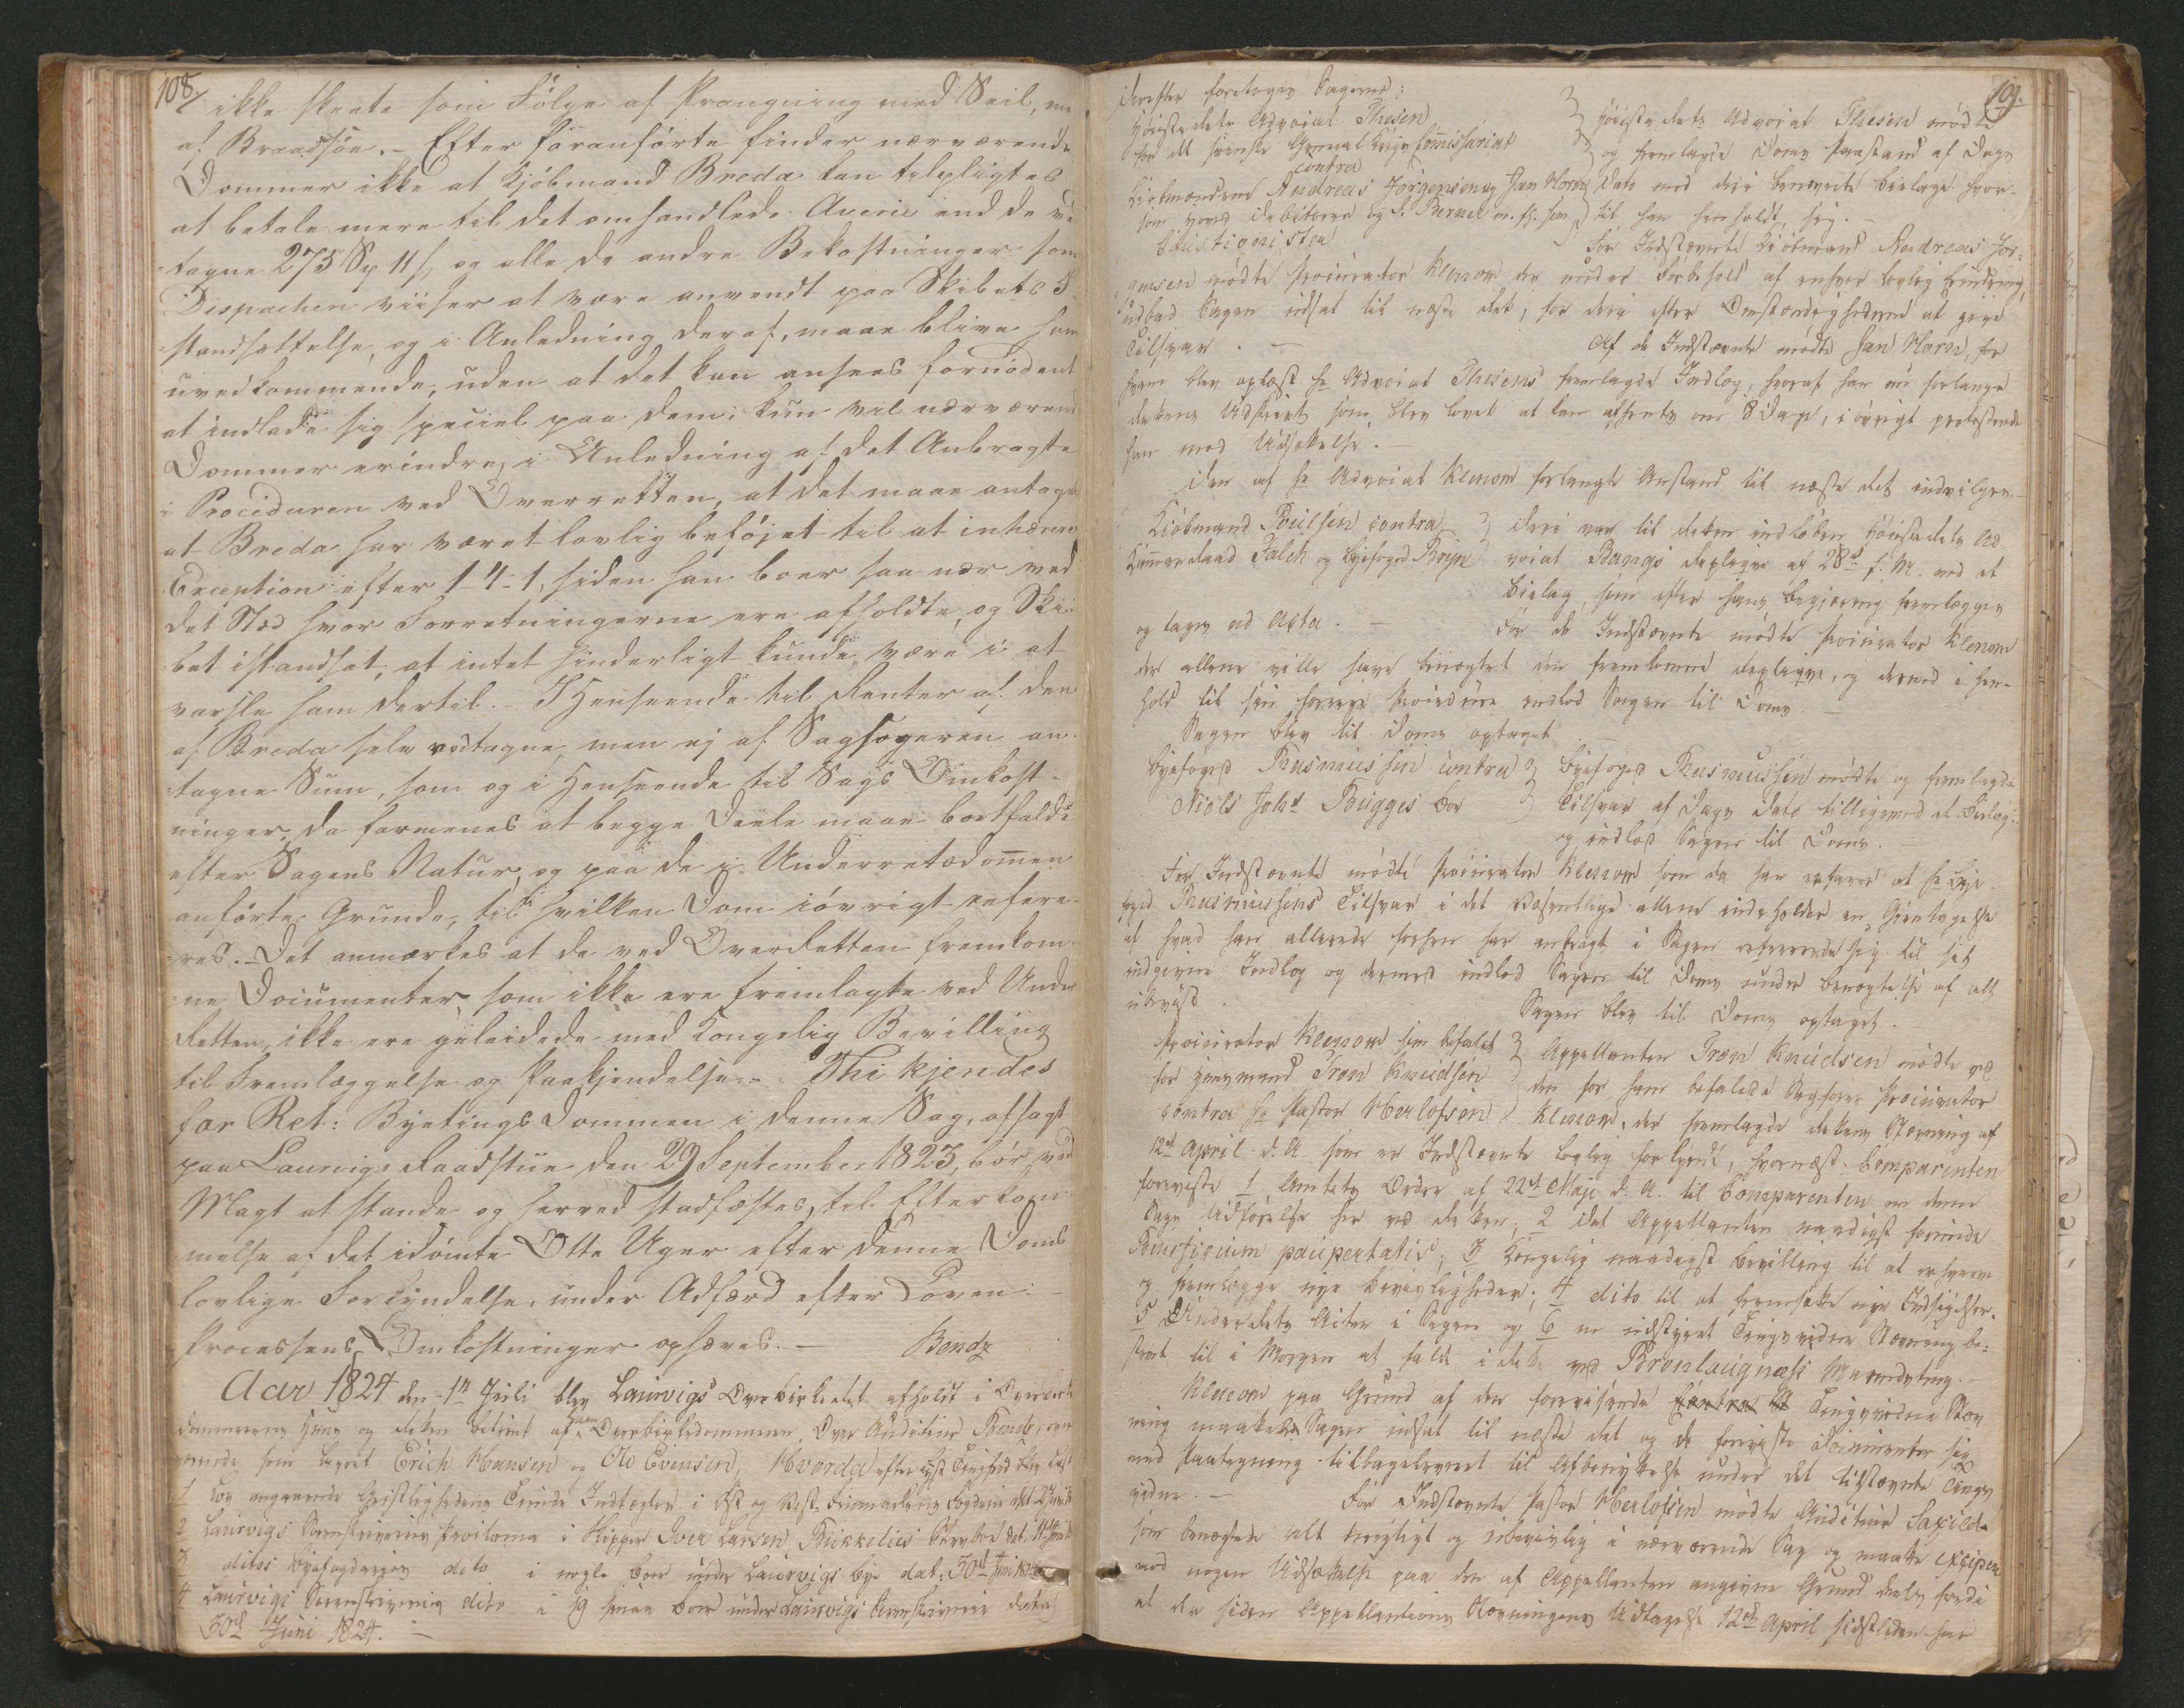 108.
ikke skeete som Følge af Prangning med Seil, me
af Braadsøe. – Efter foranførte finder nærværende
Dommer ikke at Kjøbmand Breda kan tilpligtes
at betale mere til det omhandlede Averie end de ve
tagne 275 Sp 11 s, og alle de andre Bekostninger som
Dispachen viiser at være anvendt paa Skibets I
standsættelse, og i Anledning deraf, maae blive ham
uvedkommende, uden at det kan ansees fornødent
at indlade sig speciel paa dem; kun vil nærværend
Dommer erindre, i Anledning af det Anbragte
i Proceduren ved Overretten, at det maae antages
at Breda har været lovlig beføjet til at inhærere
Exception efter 1-4-1, siden han boer saa nær ved
det Sted hvor Forretningerne ere afholdte, og Ski
bet istandsat, at intet hinderligt kunde være i at
varsle ham dertil. – I Henseende til Renter af den
af Breda selv vedtagne, men ej af Sagsøgeren an
tagne Sum, som og i Henseende til Sags Omkost-
ninger, da formenes at begge Deele maae bortfalde
efter Sagens Natur, og paa de i Underretsdommen
anførte Grunde, til hvilken Dom iøvrigt refere-
res. – Det anmærkes at de ved Overretten fremkom
ne Documenter som ikke ere fremlagte ved Under
Retten, ikke ere geleidede med Kongelig Bevilling
til Fremlæggelse og Paakjendelse. – Thi kjendes
for Ret: Byetings Dommen i denne Sag, afsagt
paa Laurvigs Raadstue den 29 September 1823, bør ved
Magt at stande og herved stadfæstes, til Efterkom
melse af det idømte Otte Uger efter denne Doms
lovlige Forkyndelse, under Adfærd efter Loven. –
Processens Omkostninger ophæves. – Bendz
Aar 1824 den 1te Juli blev Laurvigs Overbirkeret afholdt i Overbirke
dommerens Huus og Retten betient af Overbirkedommeren, Over Auditeur Bendz, over
værende som Lavret Erich Hansen og Ole Evensen, Hvorda efter lyst Tingfred blev læst
1 Lov angaaende Geistlighedens Tiende Indtægter i Øst og Vest Finmarkens Fogderie
2 Laurvigs Sorenskriveries Proclama i Skipper Iver Larsen Bukkelius Stervboe dat. 11te Juni
3 ditos Byefogderies dito i nogle Boer under Laurvigs Bye dat. 30te Juni
4 Laurvigs Sorenskriverie dito i 19 smaae Boer under Laurvigs Sorenskriverie dat.
30te Juni 1824. –
109.
Derefter foretoges Sagerne:
Høiesterets Advocat Thesen
for det svenske General Krigs Commissariat
contra
Kiøbmændene Andreas Jørgensen og Jan Horn
som debitorer og S. Berner m. fl. som
Cautionister
Høiesterets Advocat Thesen mødte
og fremlagde Doms Paastand af Dags
Dato med deri benævnte Bielage hvor-
til han henholdt sig. –
For Indstævnte Kiøbmand Andreas Jør-
gensen mødte Procurator Klenow der under Forbehold af enhver lovlig Erindring,
udbad Sagen udsat til næste Ret, for deri efter Omstændighederne at give
Tilsvar. – Af de Indstævnte mødte Jan Horn, for
ham blev oplæst Hr Advocat Thesens fremlagde Indlæg, hvoraf han nu forlangte
Rettens Udskrivt som blev lovet at kan afhentes om 8 Dage, i øvrigt protesterede
han mod Udsættelse. –
Den af Hr Advocat Klenow forlangte Anstand til næste Ret indvilgen-
Kiøbmand Poulsen contra
Kammerraad Falch og Byefoged Røyn
Deri var til Retten indløben Høiesterets Ad-
vocat Bangs Replique af 28de f. M. med et
Bielag, som efter hans Begjæring fremlægges
og tages ad Acta. – For de Indstævnte mødte Procurator Klenow
der allene ville have benægtet den fremkomne Replique, og dermed i Hen-
hold til sin forrige Procedure indlod Sagen til Doms. –
Sagen blev til Doms optaget
Byefoged Rasmussen contra
Niels Johs. Brugges Boe
Byefoged Rasmussen mødte og fremlagde
Tilsvar af Dags Dato tilligemed et Bielag
og indlod Sagen til Doms. –
For Indstævnte mødte Procurator Klenow som da han erfarer at Hr Bye-
foged Rasmussens Tilsvar i det Væsentlige allene indeholder en Gientagelse
af hvad han allerede forhen har anbragt i Sagen refererede sig til sit
indgivne Indlæg og dermed indlod Sagen til Doms under Benægtelse af alt
ubeviist. Sagen blev til Doms optaget.
Procurator Klenow som befalet
for Huusmand Tron Knudsen
contra Hr Pastor Herlofsen
Appellanten Tron Knudsen mødte ved
den for ham befalede Sagfører Procurator
Klenow, der fremlagde Rettens Stævning af
12te April d. A. som er Indstævnte lovlig forkyndt, hvornæst Comparenten
foreviste 1 Amtets Ordre af 22de Maji d. A. til Comparenten om denne
Sags Udførelse her ved Retten, 2 det Appellanten naadigst forundte
Beneficium paupertatis, 3 Kongelig naadigst Bevilling til at erhverve
og fremlægge nye Bevisligheder, 4 dito til at fremsætte nye Indsigelser.
5 Underrets Acten i Sagen og 6 en udstyret Tingsvidne Stævning be-
stemt til i Morgen at falde i Rette ved Bronlaugnæss Marendting. –
Klenow paa Grund af den foreviiste Tingsvidne Stæv
ning maatte Sagen udsat til næste Ret og de foreviste Documenter sig
med Paategning tilbageleveret til Afbenyttelse under det tilstævnte Tings
vidne. – For Indstævnte Pastor Herlofsen mødte Auditeur Saxild
som benægtede alt urigtigt og ubeviislig i nærværende Sag og maatte excipere
mod nogen Udsættelse paa den af Appellanten angivne Grund deels fordi
at der siden Appellations Stævningens Udtagelse 12te April sidstleden har